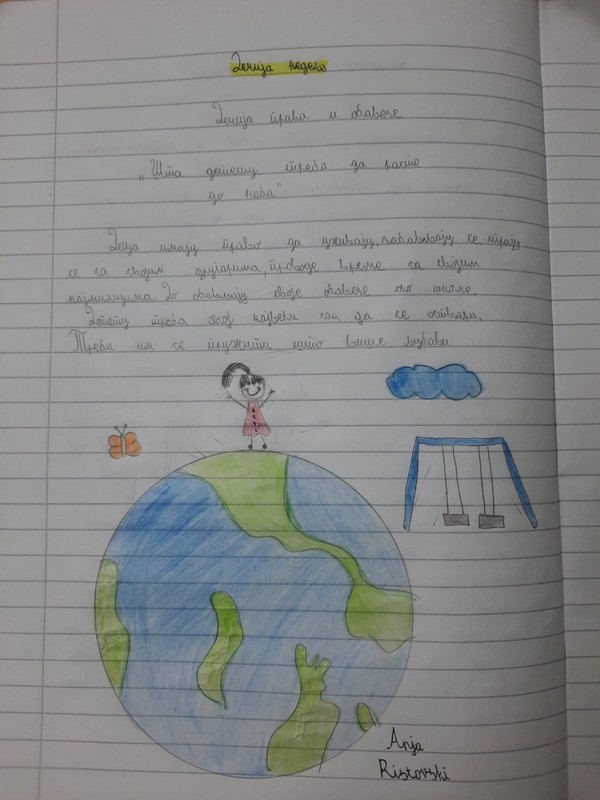 Дечија недеља
Дечија права и обавезе
„Шта детету треба да расте
до неба"
Деца имају право да уживају, забављају се, играју
се са својим другарима, проводе време са својим
најмилијима. Да обављају своје обавезе око школе.
Детету треба његов сан да се оствари.
Треба им се пружити што више љубави.
Anja
Ristovski